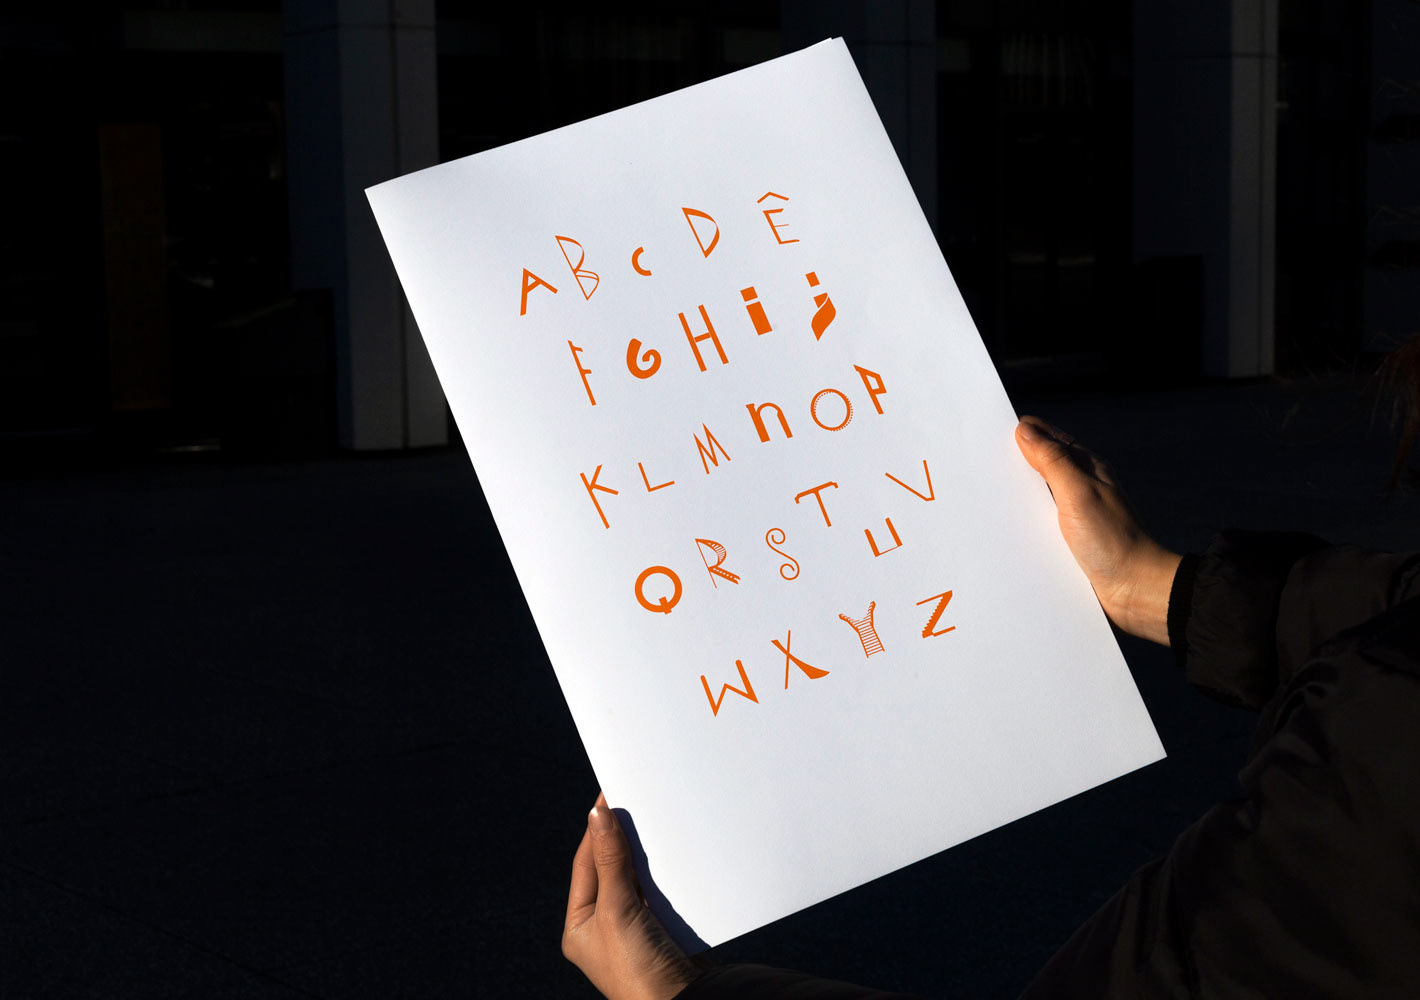 A B c D Ê
F G H i j
K L M n O P
Q R S T U V
W X Y Z